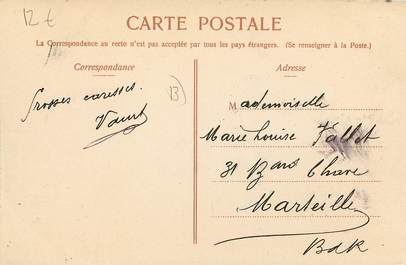 12 €
CARTE POSTALE
La Correspondance au recto n'est pas acceptée par tous les pays étrangers. (Se renseigner à la Poste.)
Correspondance
Adresse
Grosses caresses.
B
Mademoiselle
Marie Louise Vallet
31 Bard Chave
Marseille
BdR